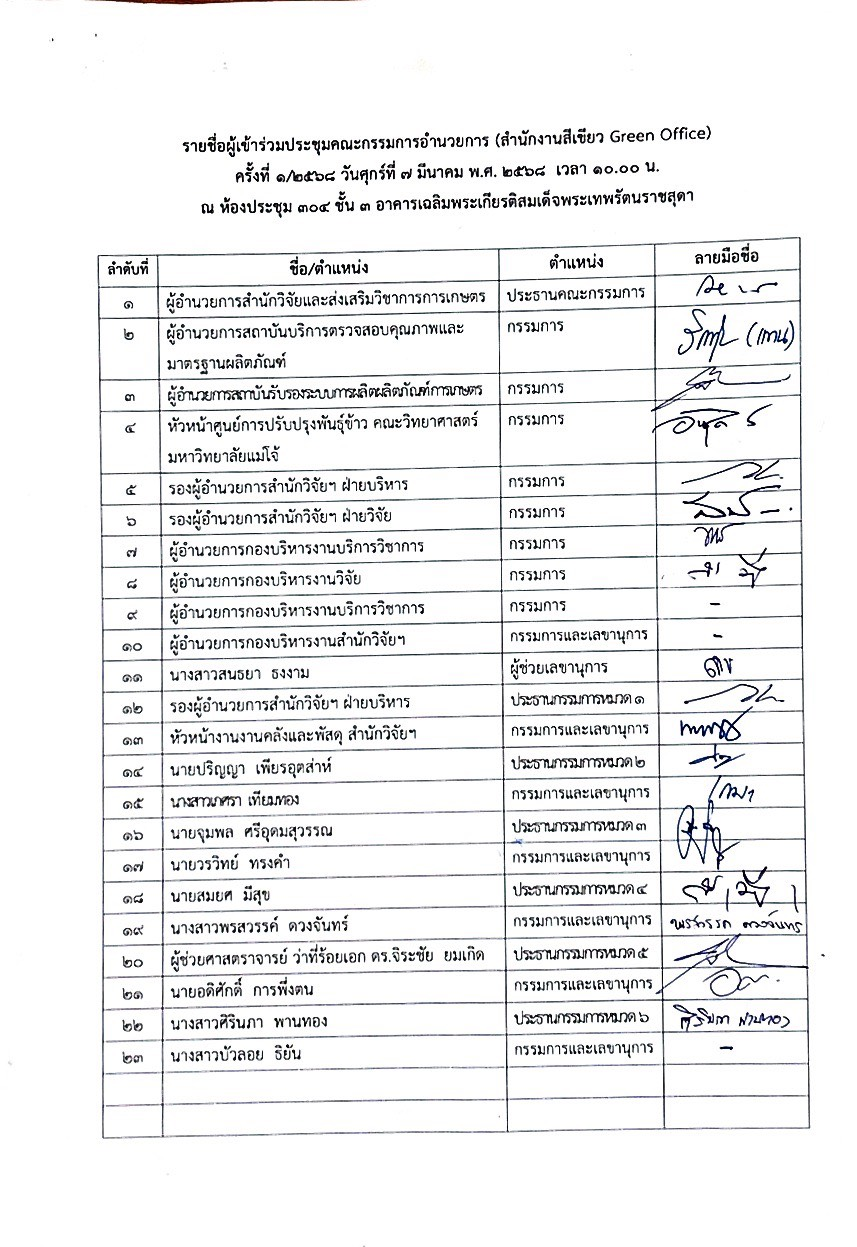 รายชื่อผู้เข้าร่วมประชุมคณะกรรมการอำนวยการ (สำนักงานสีเขียว Green Office)
ครั้งที่ ๑/๒๕๖๘ วันศุกร์ที่ ๗ มีนาคม พ.ศ. ๒๕๖๘ เวลา ๑๐.๐๐ น.
ณ ห้องประชุม ๓๐๔ ชั้น ๓ อาคารเฉลิมพระเกียรติสมเด็จพระเทพรัตนราชสุดา
ลำดับที่ ชื่อ/ตำแหน่ง ตำแหน่ง ลายมือชื่อ
๑ ผู้อำนวยการสำนักวิจัยและส่งเสริมวิชาการการเกษตร ประธานคณะกรรมการ
๒ ผู้อำนวยการสถาบันบริการตรวจสอบคุณภาพและ กรรมการ (แทน)
มาตรฐานผลิตภัณฑ์
๓ ผู้อำนวยการสถาบันรับรองระบบการผลิตผลิตภัณฑ์การเกษตร กรรมการ
๔ หัวหน้าศูนย์การปรับปรุงพันธุ์ข้าว คณะวิทยาศาสตร์ กรรมการ
มหาวิทยาลัยแม่โจ้
๕ รองผู้อำนวยการสำนักวิจัยฯ ฝ่ายบริหาร กรรมการ
๖ รองผู้อำนวยการสำนักวิจัยฯ ฝ่ายวิจัย กรรมการ
๗ ผู้อำนวยการกองบริหารงานบริการวิชาการ กรรมการ
๘ ผู้อำนวยการกองบริหารงานวิจัย กรรมการ
๙ ผู้อำนวยการกองบริหารงานบริการวิชาการ กรรมการ -
๑๐ ผู้อำนวยการกองบริหารงานสำนักวิจัยฯ กรรมการและเลขานุการ -
๑๑ นางสาวสนธยา ธงงาม ผู้ช่วยเลขานุการ
๑๒ รองผู้อำนวยการสำนักวิจัยฯ ฝ่ายบริหาร ประธานกรรมการหมวด ๑
๑๓ หัวหน้างานงานคลังและพัสดุ สำนักวิจัยฯ กรรมการและเลขานุการ
๑๔ นายปริญญา เพียรอุตส่าห์ ประธานกรรมการหมวด ๒
๑๕ นางสาวเกศรา เทียมทอง กรรมการและเลขานุการ
๑๖ นายจุมพล ศรีอุดมสุวรรณ ประธานกรรมการหมวด ๓
๑๗ นายวรวิทย์ ทรงคำ กรรมการและเลขานุการ
๑๘ นายสมยศ มีสุข ประธานกรรมการหมวด ๔
๑๙ นางสาวพรสวรรค์ ดวงจันทร์ กรรมการและเลขานุการ พรสวรรค์ ดวงจันทร์
๒๐ ผู้ช่วยศาสตราจารย์ ว่าที่ร้อยเอก ดร.จิระชัย ยมเกิด ประธานกรรมการหมวด ๕
๒๑ นายอดิศักดิ์ การพึ่งตน กรรมการและเลขานุการ
๒๒ นางสาวศิรินภา พานทอง ประธานกรรมการหมวด ๖ ศิรินภา พานทอง
๒๓ นางสาวบัวลอย ธิยัน กรรมการและเลขานุการ -